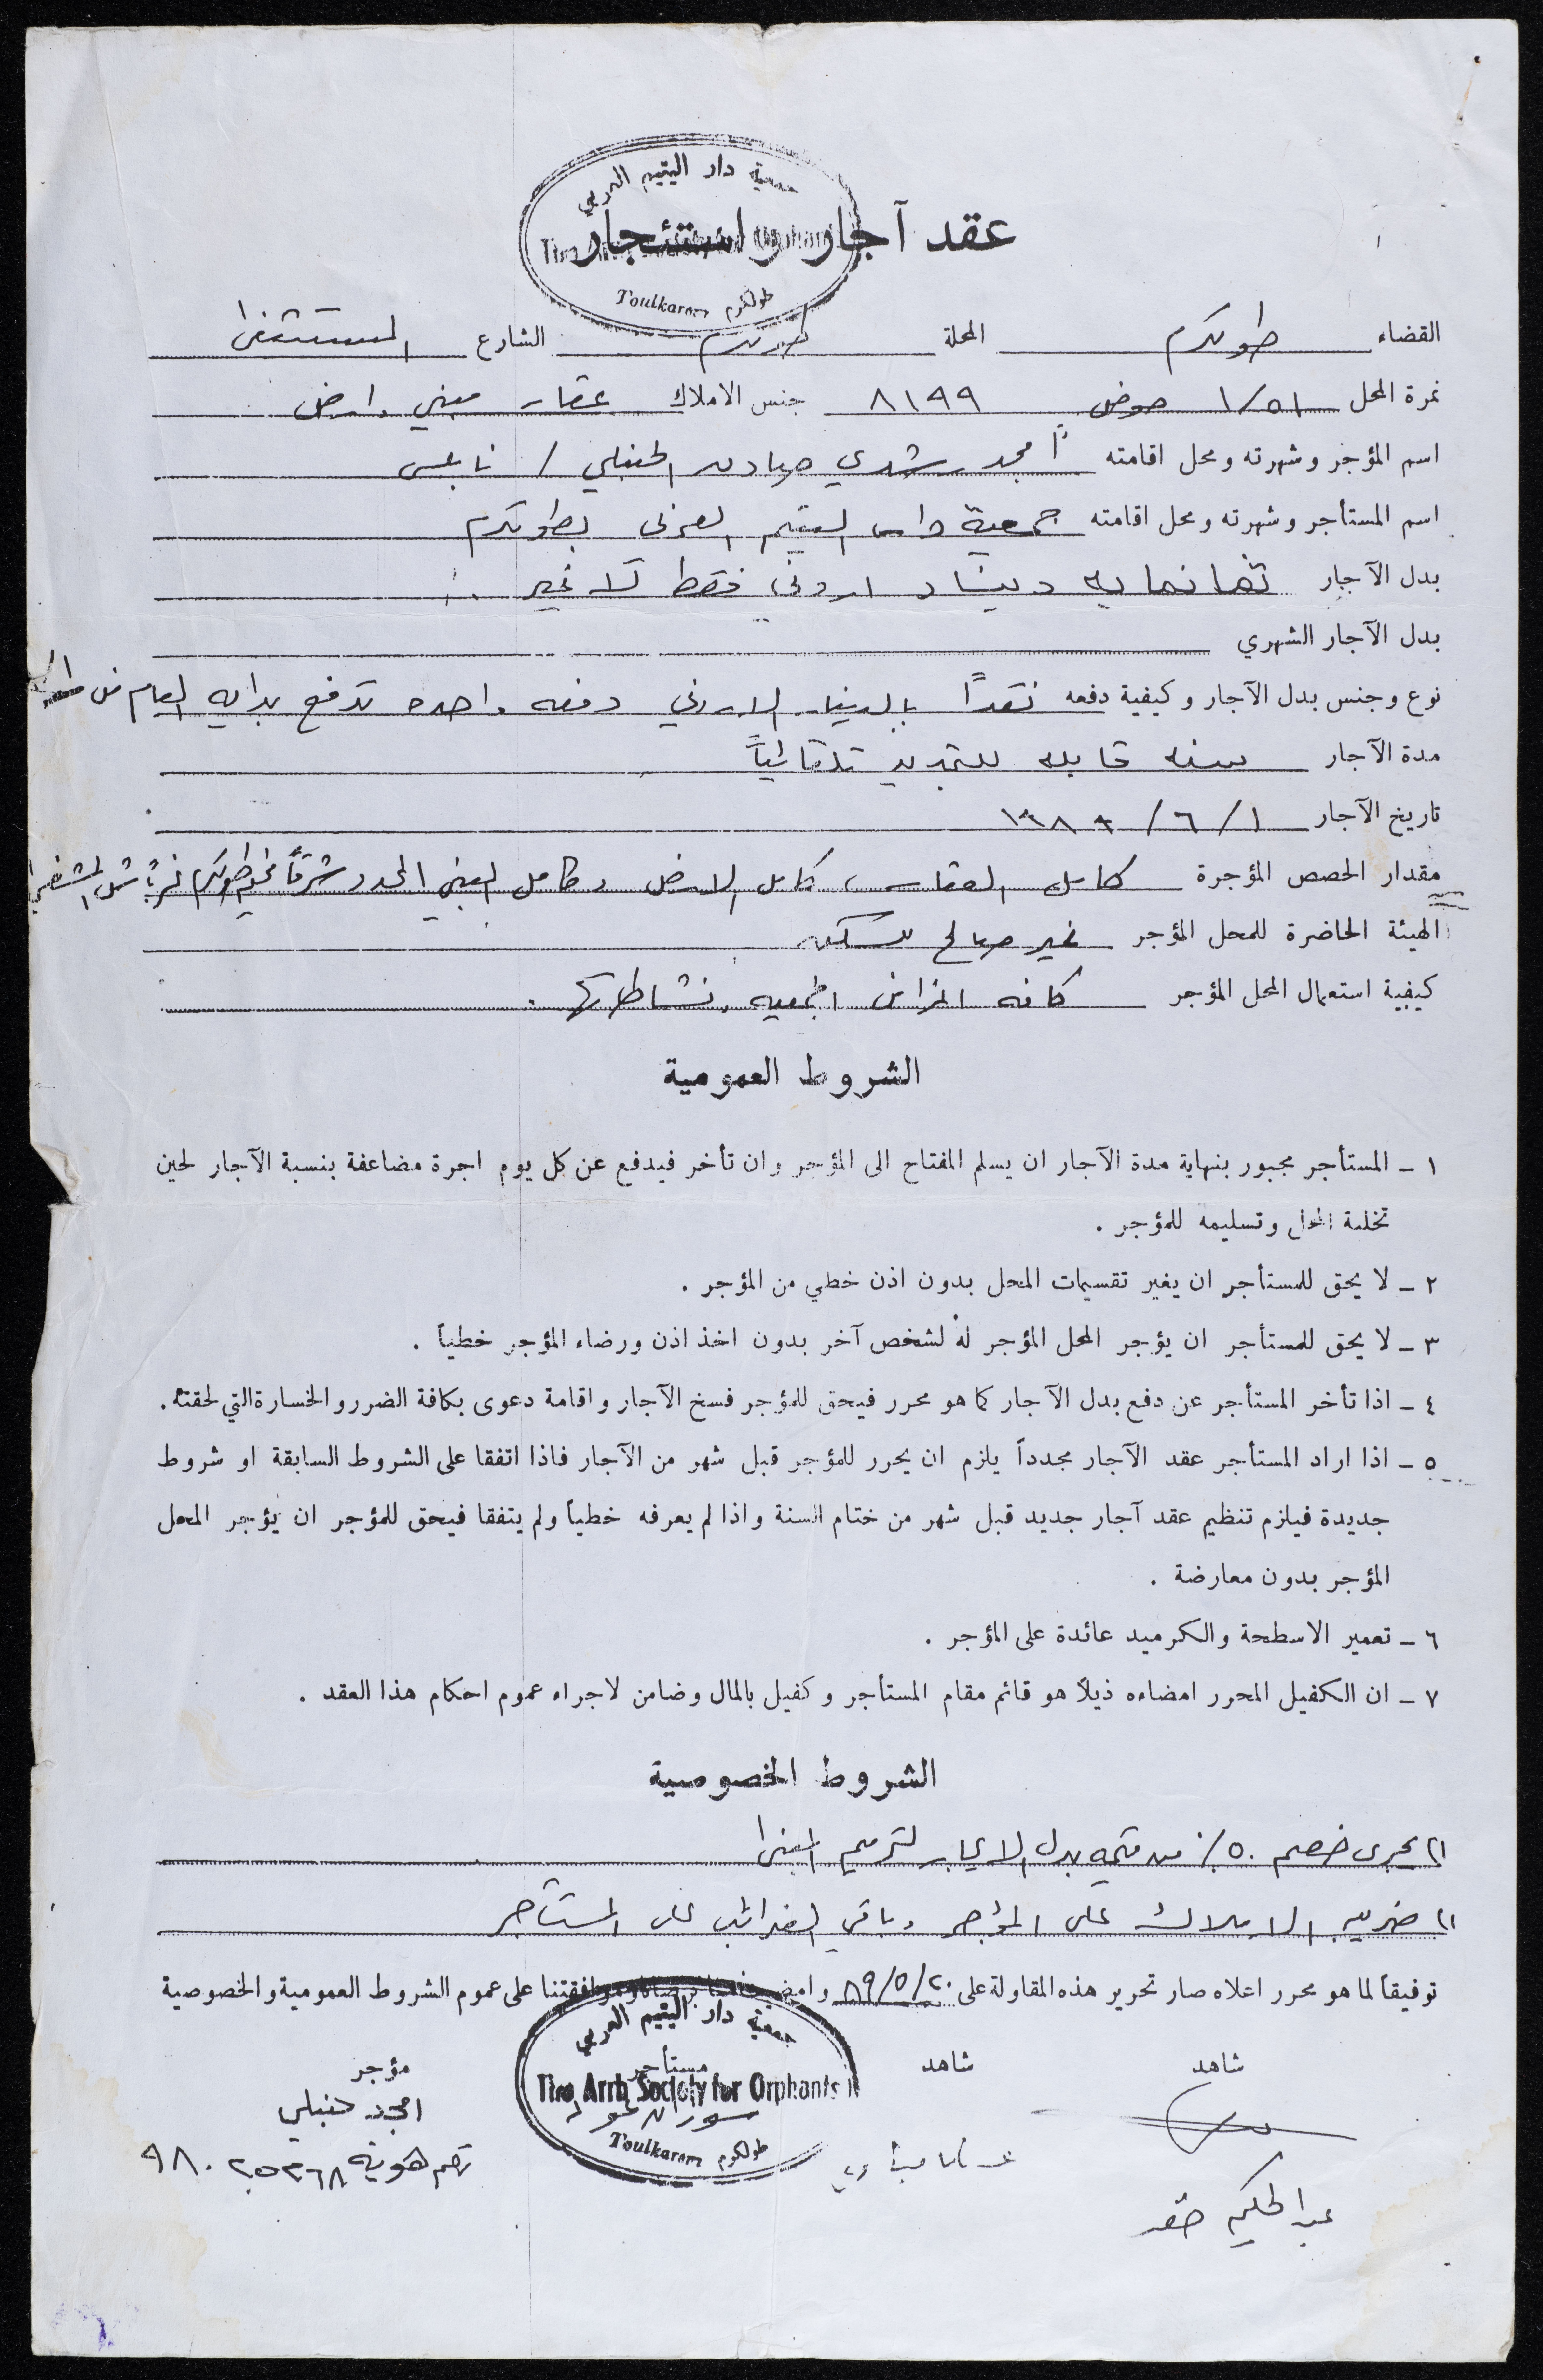 جمعية دار اليتيم العربي
عقد آجار واستئجار
Toulkarem طولكرم
القضاء طولكرم المحلة طولكرم الشارع المستشفى
نمرة المحل ١/٥١ حوض ٨١٩٩ جنس الاملاك عقار مبني وارض
اسم المؤجر وشهرته ومحل اقامته أمجد رشدي الحنبلي / نابلس
اسم المستأجر وشهرته ومحل اقامته جمعية دار اليتيم العربي بطولكرم
بدل الآجار ثمانمايه دينار اردني فقط لا غير
بدل الآجار الشهري
نوع وجنس بدل الآجار وكيفية دفعه نقداً بالدينار الاردني دفعه واحده تدفع بدايه العام من
مدة الآجار سنه قابله للتجديد تلقائياً
تاريخ الآجار ١ / ٦ / ١٩٨٩
مقدار الحصص المؤجرة كامل العقار، كامل الارض وكامل المبنى المحدد شرقاً مخيم طولكرم
الهيئة الحاضرة للمحل المؤجر غير صالح للسكن
كيفية استعمال المحل المؤجر كافه اغراض الجمعيه ونشاطاتها .
الشروط العمومية
١ - المستأجر مجبور بنهاية مدة الآجار ان يسلم المفتاح الى المؤجر وان تأخر فيدفع عن كل يوم اجرة مضاعفة بنسبة الآجار لحين
تخلية المحل وتسليمه للمؤجر .
٢ - لا يحق للمستأجر ان يغير تقسيمات المحل بدون اذن خطي من المؤجر .
٣ - لا يحق للمستأجر ان يؤجر المحل المؤجر له لشخص آخر بدون اخذ اذن ورضاء المؤجر خطياً .
٤ - اذا تأخر المستأجر عن دفع بدل الآجار كما هو محرر فيحق للمؤجر فسخ الآجار واقامة دعوى بكافة الضرر والخسارة التي لحقته .
٥ - اذا اراد المستأجر عقد الآجار مجدداً يلزم ان يحرر للمؤجر قبل شهر من الآجار فاذا اتفقا على الشروط السابقة او شروط
جديدة فيلزم تنظيم عقد آجار جديد قبل شهر من ختام السنة واذا لم يعرفه خطياً ولم يتفقا فيحق للمؤجر ان يؤجر المحل
المؤجر بدون معارضة .
٦ - تعمير الاسطحة والكرميد عائدة على المؤجر .
٧ - ان الكفيل المحرر امضاءه ذيلاً هو قائم مقام المستأجر وكفيل بالمال وضامن لاجراء عموم احكام هذا العقد .
الشروط الخصوصية
١) يجرى خصم ٥٠٪ من قيمة بدل الايجار لترميم المبنى
٢) ضريبه الاملاك على المؤجر وباقي الضرائب على المستأجر
توفيقاً لما هو محرر اعلاه صار تحرير هذه المقاولة على ٢٠/٥/٨٩ وموافقتنا على عموم الشروط العمومية والخصوصية
جمعية دار اليتيم العربي
شاهد شاهد مستأجر مؤجر
The Arrb Society for Orphants
امجد حنبلي
Toulkarem طولكرم
رقم هوية ٩٨٠٢٥٣٦٨
عبد الحكيم صقر